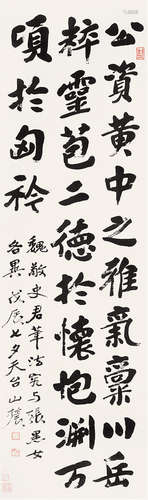 公资黄中之雅氣稟川岳
粹靈苞二德於懷抱洞万
頃於匈衿
魏敬史君筆法寔与張黑女
各異 戊廣七夕天台山農